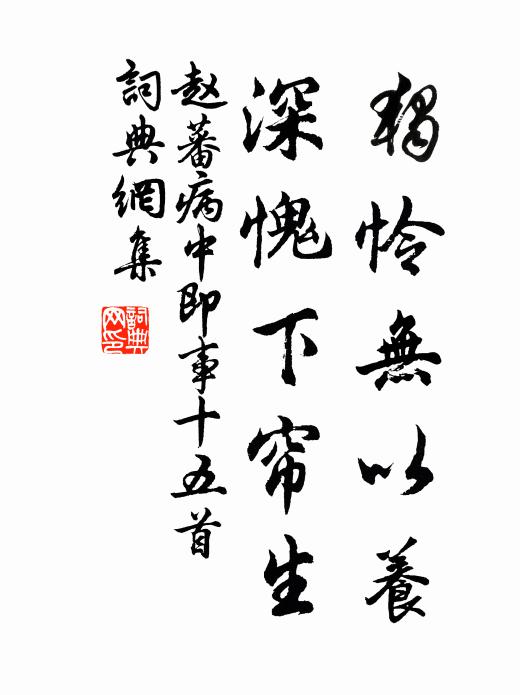 獨怜無以養
深愧下帘生
赵蕃病中即事十五首
詞典網集
詞典网印